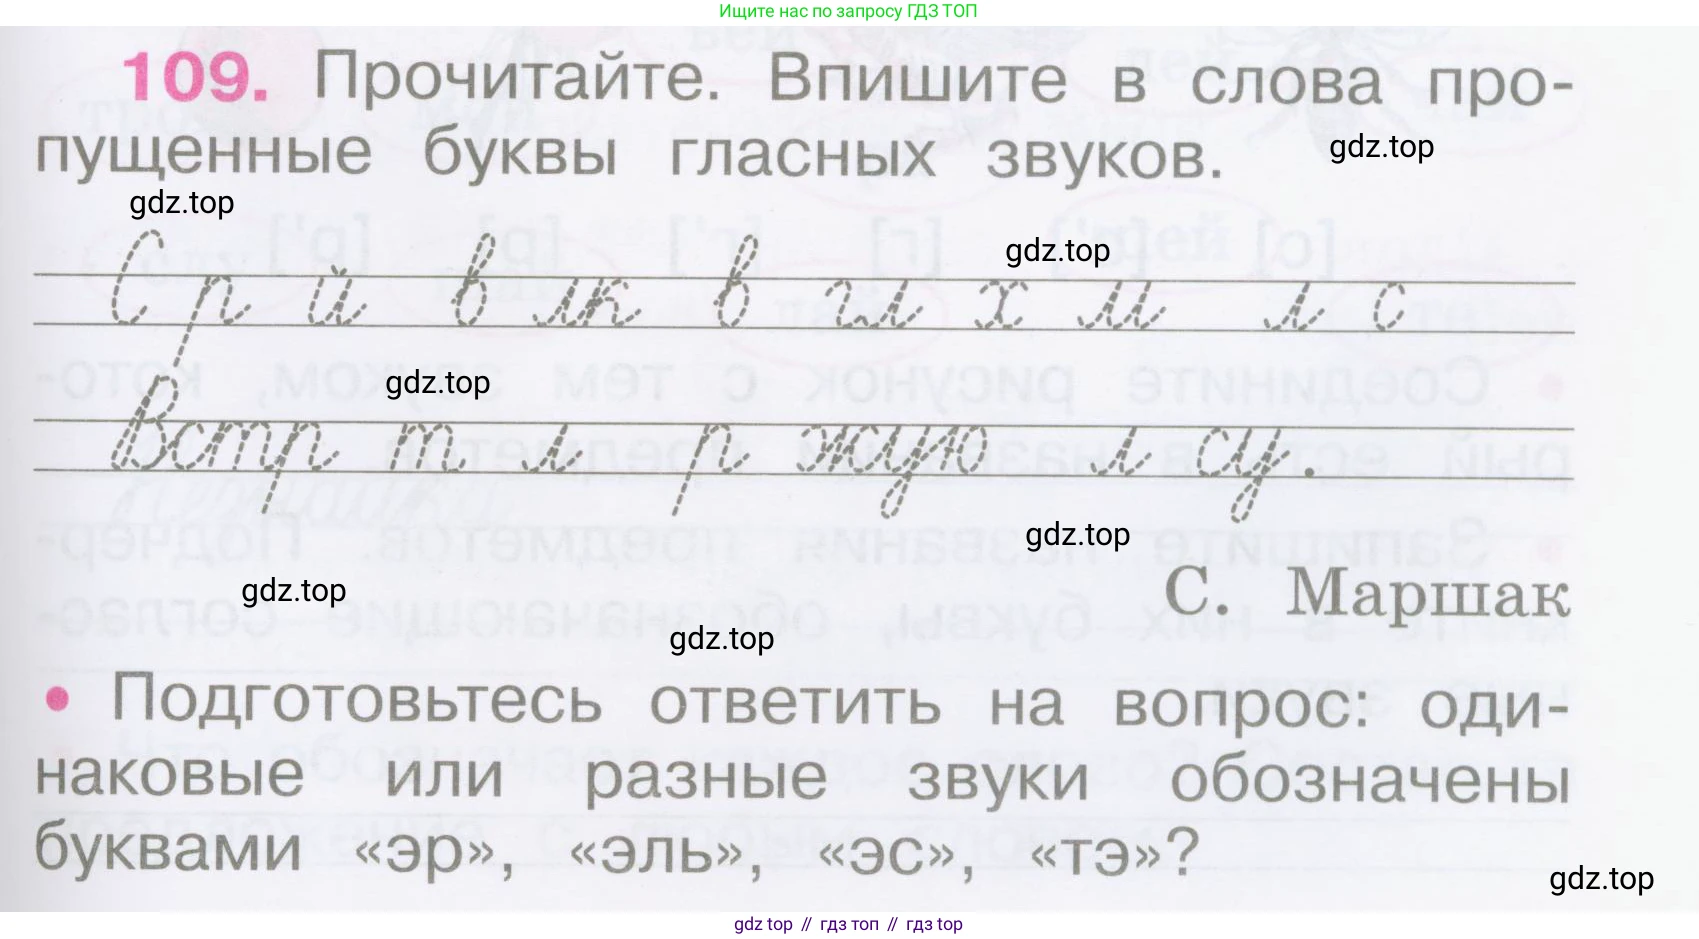 Ищите нас по запросу ГДЗ ТОП
109. Прочитайте. Впишите в слова про-
пущенные буквы гласных звуков.
gdz.top
gdz.top
gdz.top
С п й в лк в ш х м л с
gdz.top
Встр т л р жую л су.
gdz.top
gdz.top
С. Маршак
gdz.top
• Подготовьтесь ответить на вопрос: оди-
наковые или разные звуки обозначены
буквами «эр», «эль», «эс», «тэ»?
gdz.top
gdz top // гдз топ // гдз top